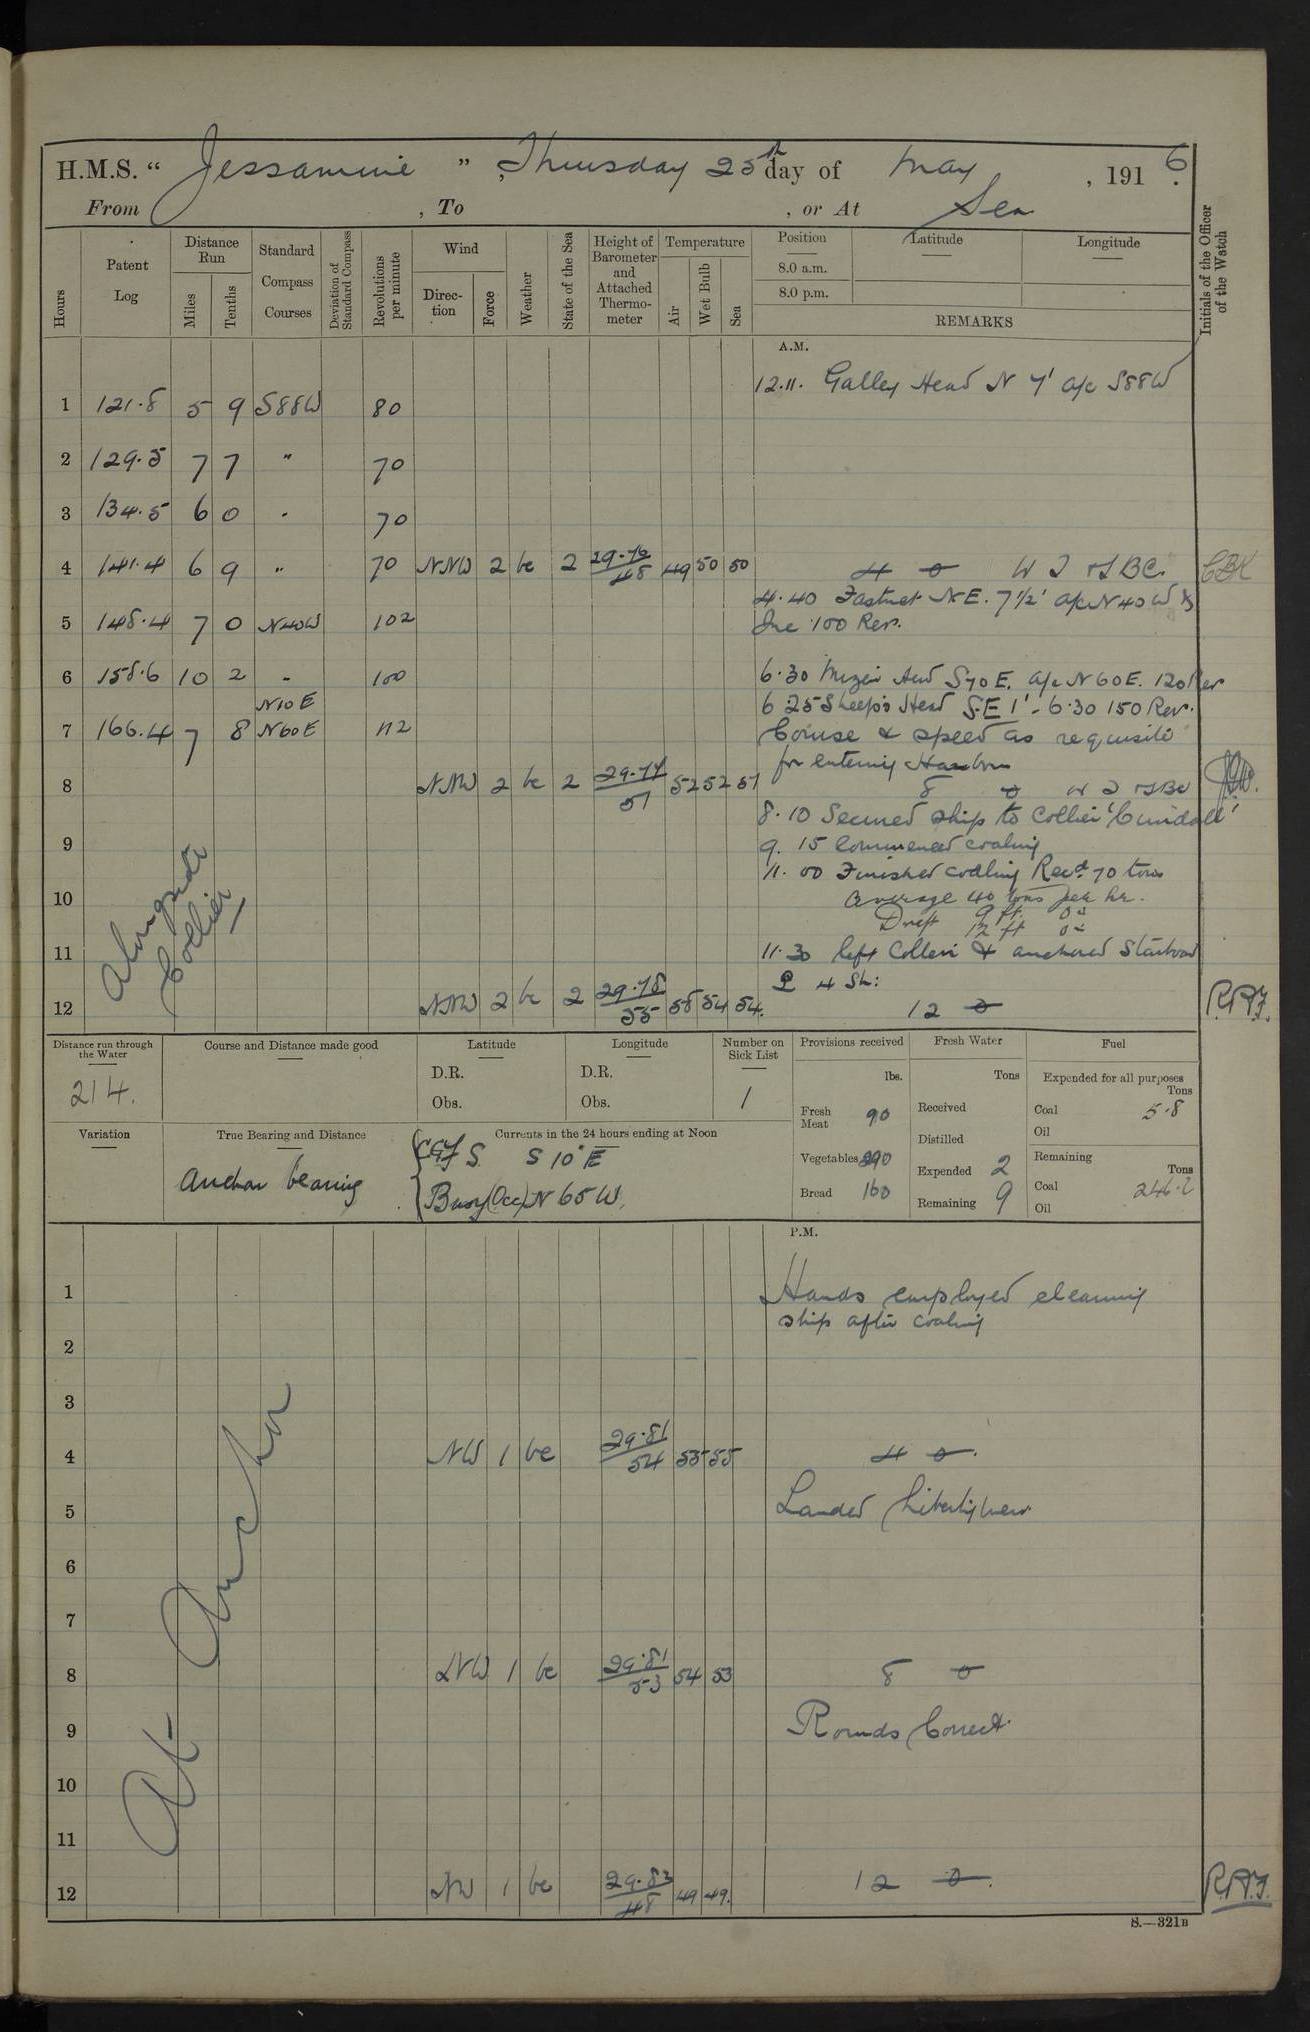 H.M.S. " Jessamine ", Thursday 25th day of May, 1916.
From , To , or At Sea
Hours
Patent Log
Distance Run
Miles
Tenths
Standard Compass Courses
Deviation of Standard Compass
Revolutions per minute
Wind
Direction
Force
Weather
State of the Sea
Height of Barometer and Attached Thermometer
Temperature
Air
Wet Bulb
Sea
Position
8.0 a.m.
8.0 p.m.
Latitude
Longitude
REMARKS
Initials of the Officer of the Watch
A.M.
12.11. Galley Head N 7' a/c S88W
1 121.8 5 9 S88W 80
2 129.5 7 7 " 70
3 134.5 6 0 " 70
4 141.4 6 9 " 70 NNW 2 bc 2 29.76/48 49 50 50
4 0
4.40 Fastnet NE. 7½' a/c N40W &
Inc 100 Rev.
5 148.4 7 0 N40W 102
6 158.6 10 2 " 100
6.30 Mizen Head S70E. a/c N60E. 120 Rev
6.25 Sheep's Head S.E 1' - 6.30 150 Rev.
N10E
7 166.4 7 8 N60E 112
Course & speed as requisite
for entering Harbour
8 NNW 2 bc 2 29.77/51 52 52 51
8 0
8.10 Secured ship to Collier 'Cundall'
9
9.15 Commenced coaling
11.00 Finished coaling Recd 70 tons
10
average 40 tons per hr.
Draft 9 ft. 0"
12 ft 0"
Alongside Collier
11
11.30 left Collier & anchored Starboard
4 Sh:
12 NNW 2 bc 2 29.78/55 58 54 54.
12 0 R.A.J.
Distance run through the Water
214.
Course and Distance made good
Latitude
D.R.
Obs.
Longitude
D.R.
Obs.
Number on Sick List
1
Provisions received
lbs.
Fresh Meat 90
Vegetables 290
Bread 160
Fresh Water
Tons
Received
Distilled
Expended 2
Remaining 9
Fuel
Expended for all purposes
Tons
Coal 5.8
Oil
Remaining
Tons
Coal 246.2
Oil
Variation
True Bearing and Distance
Anchor bearing
Currents in the 24 hours ending at Noon
S 10° E
Buoy (Occ) N 65 W.
P.M.
1
Hands employed cleaning
ship after coaling
2
3
4 NW 1 bc 29.81/54 55 55
4 0.
5
Landed libertymen
6
7
8 NW 1 bc 29.81/53 54 53
8 0
9
Rounds Correct.
10
11
12 NW 1 bc 29.82/48 49 49.
12 0. R.A.J.
At Anchor
S.—321B